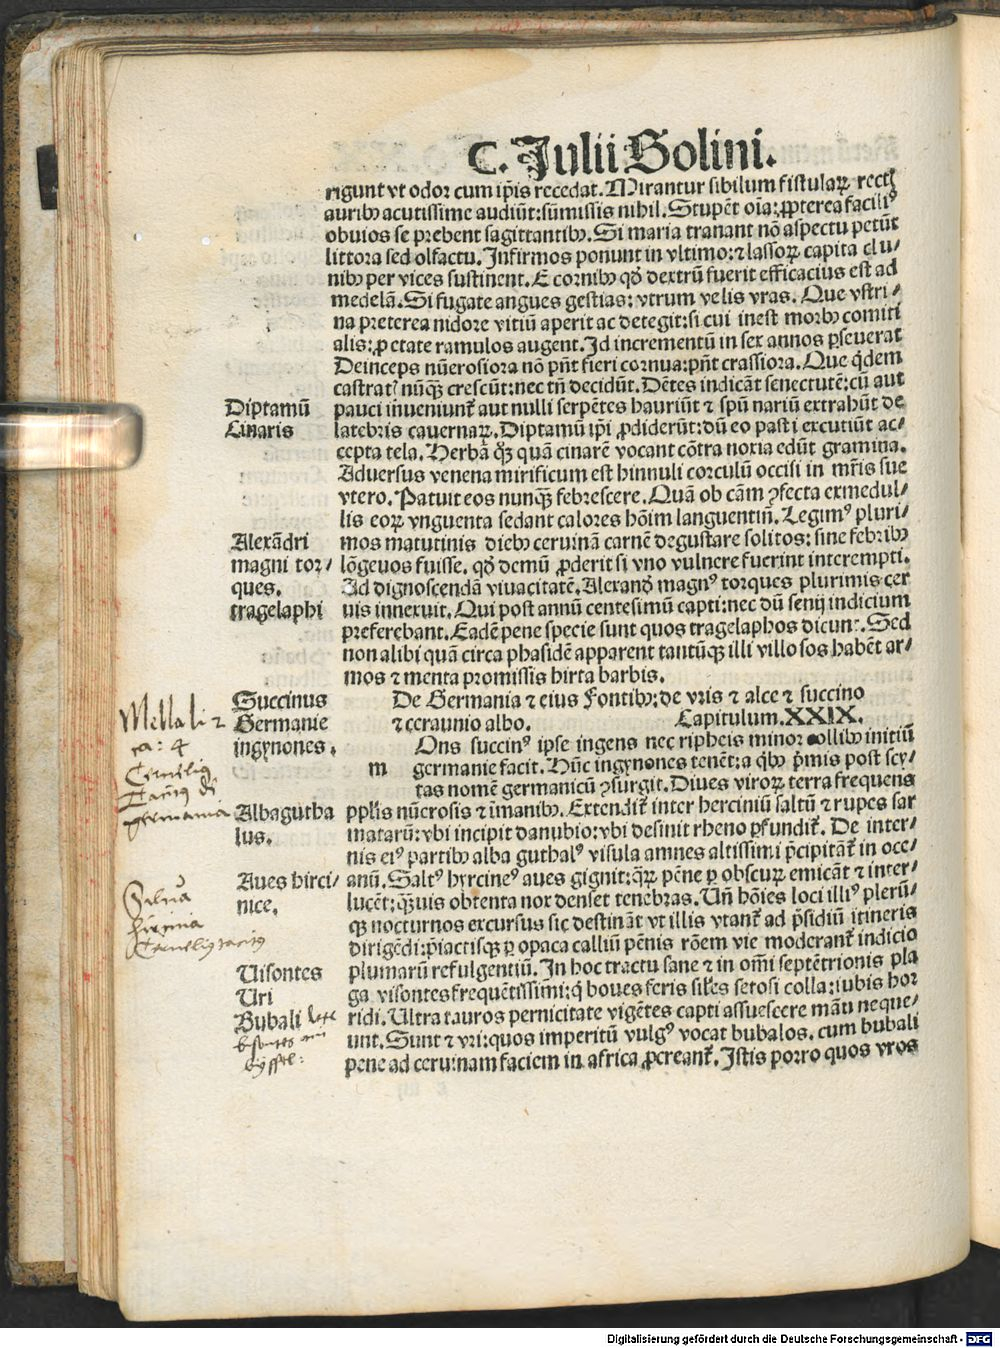 C. Julii Solini.
rigunt vt odor cum ip̃is recedat. Mirantur sibilum fistulaꝝ rectꝭ
auribꝫ acutissime audiũt: sũmissis nihil. Stupẽt oĩa: ꝓpterea faciliꝰ
obuios se prebent sagittantibꝫ. Si maria tranant nõ aspectu petũt
littora sed olfactu. Infirmos ponunt in vltimo: ⁊ lassoꝝ capita clu⸗
nibꝫ per vices sustinent. E cornibꝫ qd̕ dextrũ fuerit efficacius est ad
medelã. Si fugate angues gestias: vtrum velis vras. Que vstri⸗
na preterea nidore vitiũ aperit ac detegit: si cui inest morbꝫ comiti
alis: ꝓ etate ramulos augent. Id incrementũ in sex annos ꝑseuerat
Deinceps nũerosiora nõ pñt fieri cornua: pñt crassiora. Que q̇dem
castratꝭ nũqꝫ crescũt: nec tñ decidũt. Dẽtes indicãt senectutẽ: cũ aut
Diptamũ
pauci inueniunt̃ aut nulli serpẽtes hauriũt ⁊ spũ nariũ extrahũt de
Cinaris
latebris cauernaꝝ. Diptamũ ip̃i ꝓdiderũt: dũ eo pasti excutiũt ac⸗
cepta tela. Herbã qꝫ quã cinarẽ vocant cõtra noxia edũt gramina.
Aduersus venena mirificum est hinnuli corculũ occisi in mr̃is sue
vtero. Patuit eos nunqꝫ febrescere. Quã ob cãm ꝯfecta exmedul⸗
lis eoꝝ vnguenta sedant calores hõim languentiũ. Legimꝰ pluri⸗
Alexãdri
mos matutinis diebꝫ ceruinã carnẽ degustare solitos: sine febribꝫ
magni tor⸗
lõgeuos fuisse. qd̕ demũ ꝓderit si vno vulnere fuerint interempti.
ques.
Ad dignoscendã viuacitatẽ. Alexand̕ magnꝰ torques plurimis cer
tragelaphi
uis innexuit. Qui post annũ centesimũ capti: nec dũ senij indicium
preferebant. Eadẽ pene specie sunt quos tragelaphos dicunt. Sed
non alibi quã circa phasidẽ apparent tantũqꝫ illi villosos habẽt ar⸗
mos ⁊ menta promissis hirta barbis.
Succinus
De Germania ⁊ eius fontibꝫ: de vris ⁊ alce ⁊ succino
Germanie
⁊ ceraunio albo. Capitulum. XXIX.
ingynones.
Ons succinꝰ ipse ingens nec ripheis minor collibꝫ initiũ
m germanie facit. Hũc ingynones tenẽt: a qbꝫ p̃mis post scy⸗
tas nomẽ germanicũ ꝯsurgit. Diues viroꝝ terra frequens
Cornelius
Tacitus d̃
germania
Albagutha
pplis nũerosis ⁊ ĩmanibꝫ. Extendit̃ inter herciniũ saltũ ⁊ rupes sar
lus.
matarũ: vbi incipit danubio: vbi desinit rheno ꝑfundit̃. De inter⸗
nis eiꝰ partibꝫ alba guthalꝰ visula amnes altissimi p̃cipitãt̃ in oce⸗
Aues hirci⸗
anũ. Saltꝰ hyrcineꝰ aues gignit: qꝝ pẽne ꝑ obscuꝝ emicãt ⁊ inter⸗
nice.
lucẽt: qꝫuis obtenta nox denset tenebras. Uñ hõies loci illiꝰ plerũ⸗
qꝫ nocturnos excursus sic destinãt vt illis vtant̃ ad p̃sidiũ itineris
dirigẽdi: p̃iactisqꝫ ꝑ opaca calliũ pẽnis rõem vie moderant̃ indicio
Silua
hircinia
Cornelius tacitus
Uisontes
plumarũ refulgentiũ. In hoc tractu sane ⁊ in om̃i septẽtrionis pla
Uri
ga visontes frequẽtissimi: q̇ boues feris sil̃es setosi colla: iubis hor
Bubali
ridi. Ultra tauros pernicitate vigẽtes capti assuescere mãu neque⸗
unt. Sunt ⁊ vri: quos imperitũ vulgꝰ vocat bubalos. cum bubali
pene ad ceruinam faciem in africa ꝓcreant̃. Istis porro quos vros
Digitalisierung gefördert durch die Deutsche Forschungsgemeinschaft - DFG